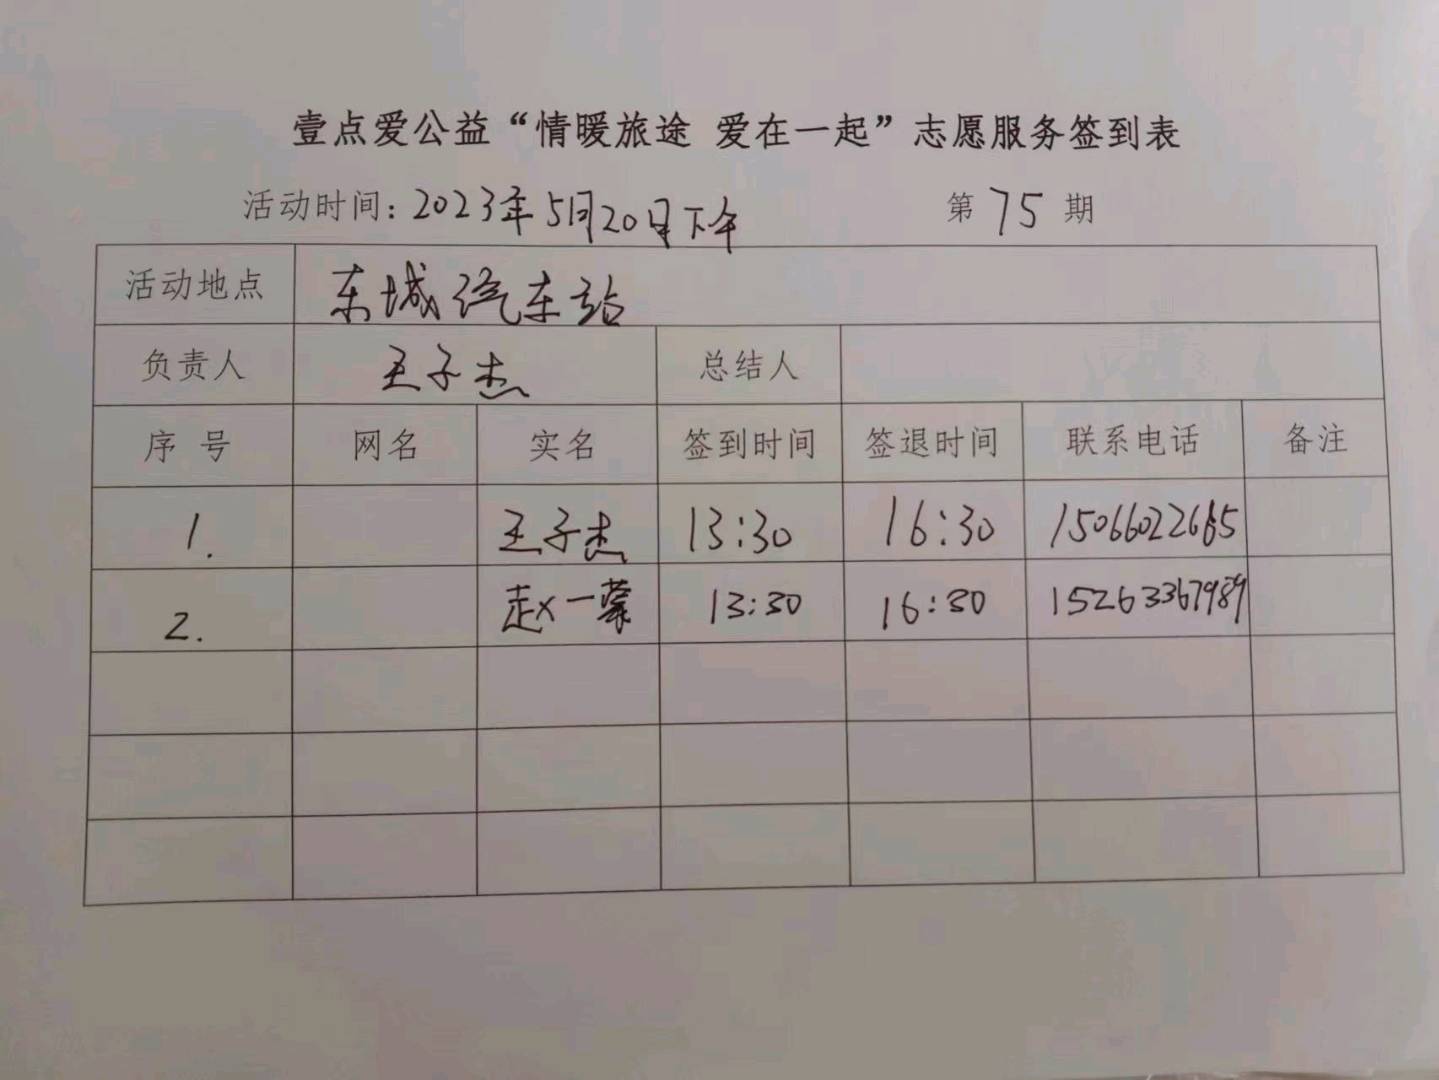 壹点爱公益“情暖旅途 爱在一起”志愿服务签到表
活动时间：2023年5月20日下午 第75期
活动地点 东城汽车站
负责人 王子杰 总结人
序号 网名 实名 签到时间 签退时间 联系电话 备注
1. 王子杰 13:30 16:30
2. 赵一蒙 13:30 16:30 15263367989